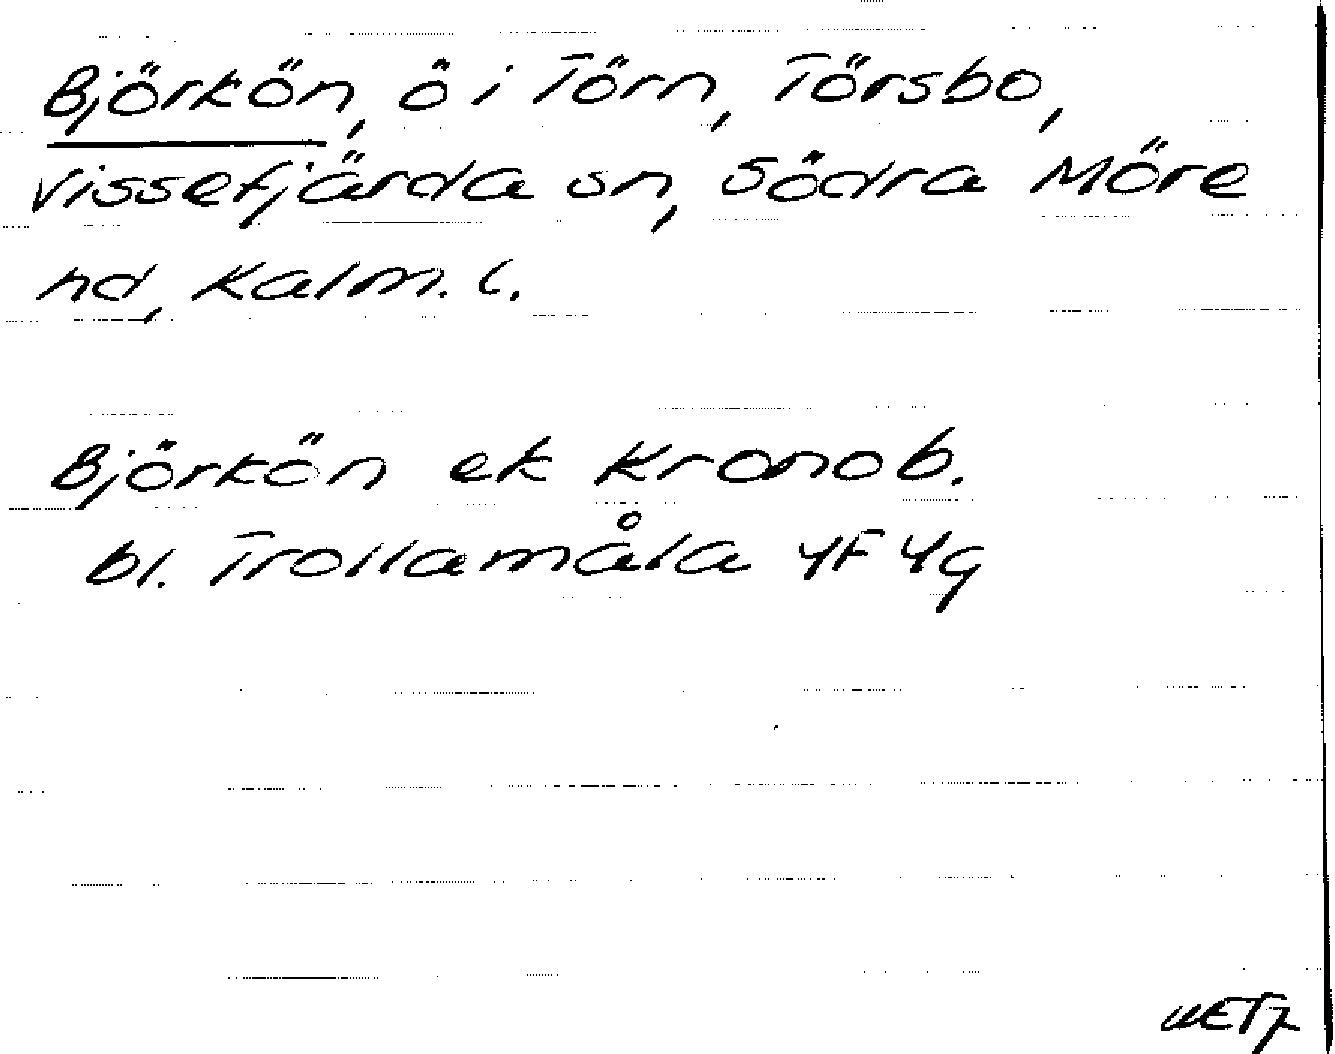 Björkön, ö i Törn, Törsbo,
Vissefjärda sn, Södra Möre
hd, Kalm. l.
Björkön ek Kronob.
bl. Trollamåla 4F 4g